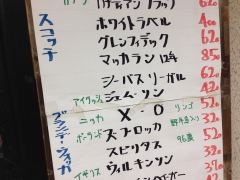 スコッチ
カナディアンクラブ 620
ホワイトラベル 400
グレンフィデック 620
マッカラン 12年 850
シーバスリーガル 620
アイリッシュ ジェムソン 420
ブランデー・ウォッカ
ニッカ X・O リンゴ 520
ポーランド ズブロッカ 野牛草入り 320
スピリタス 96度 420
イギリス ウィルキンソン 320
370